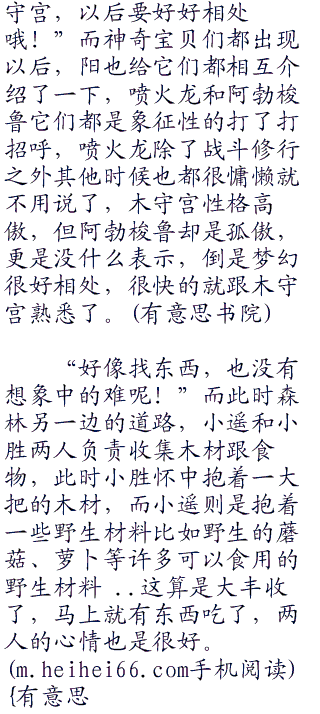 守宫，以后要好好相处
哦！”而神奇宝贝们都出现
以后，阳也给它们都相互介
绍了一下，喷火龙和阿勃梭
鲁它们都是象征性的打了打
招呼，喷火龙除了战斗修行
之外其他时候也都很慵懒就
不用说了，木守宫性格高
傲，但阿勃梭鲁却是孤傲，
更是没什么表示，倒是梦幻
很好相处，很快的就跟木守
宫熟悉了。(有意思书院)
“好像找东西，也没有
想象中的难呢！”而此时森
林另一边的道路，小遥和小
胜两人负责收集木材跟食
物，此时小胜怀中抱着一大
把的木材，而小遥则是抱着
一些野生材料比如野生的蘑
菇、萝卜等许多可以食用的
野生材料 ..这算是大丰收
了，马上就有东西吃了，两
人的心情也是很好。
(m.heihei66.com手机阅读)
{有意思